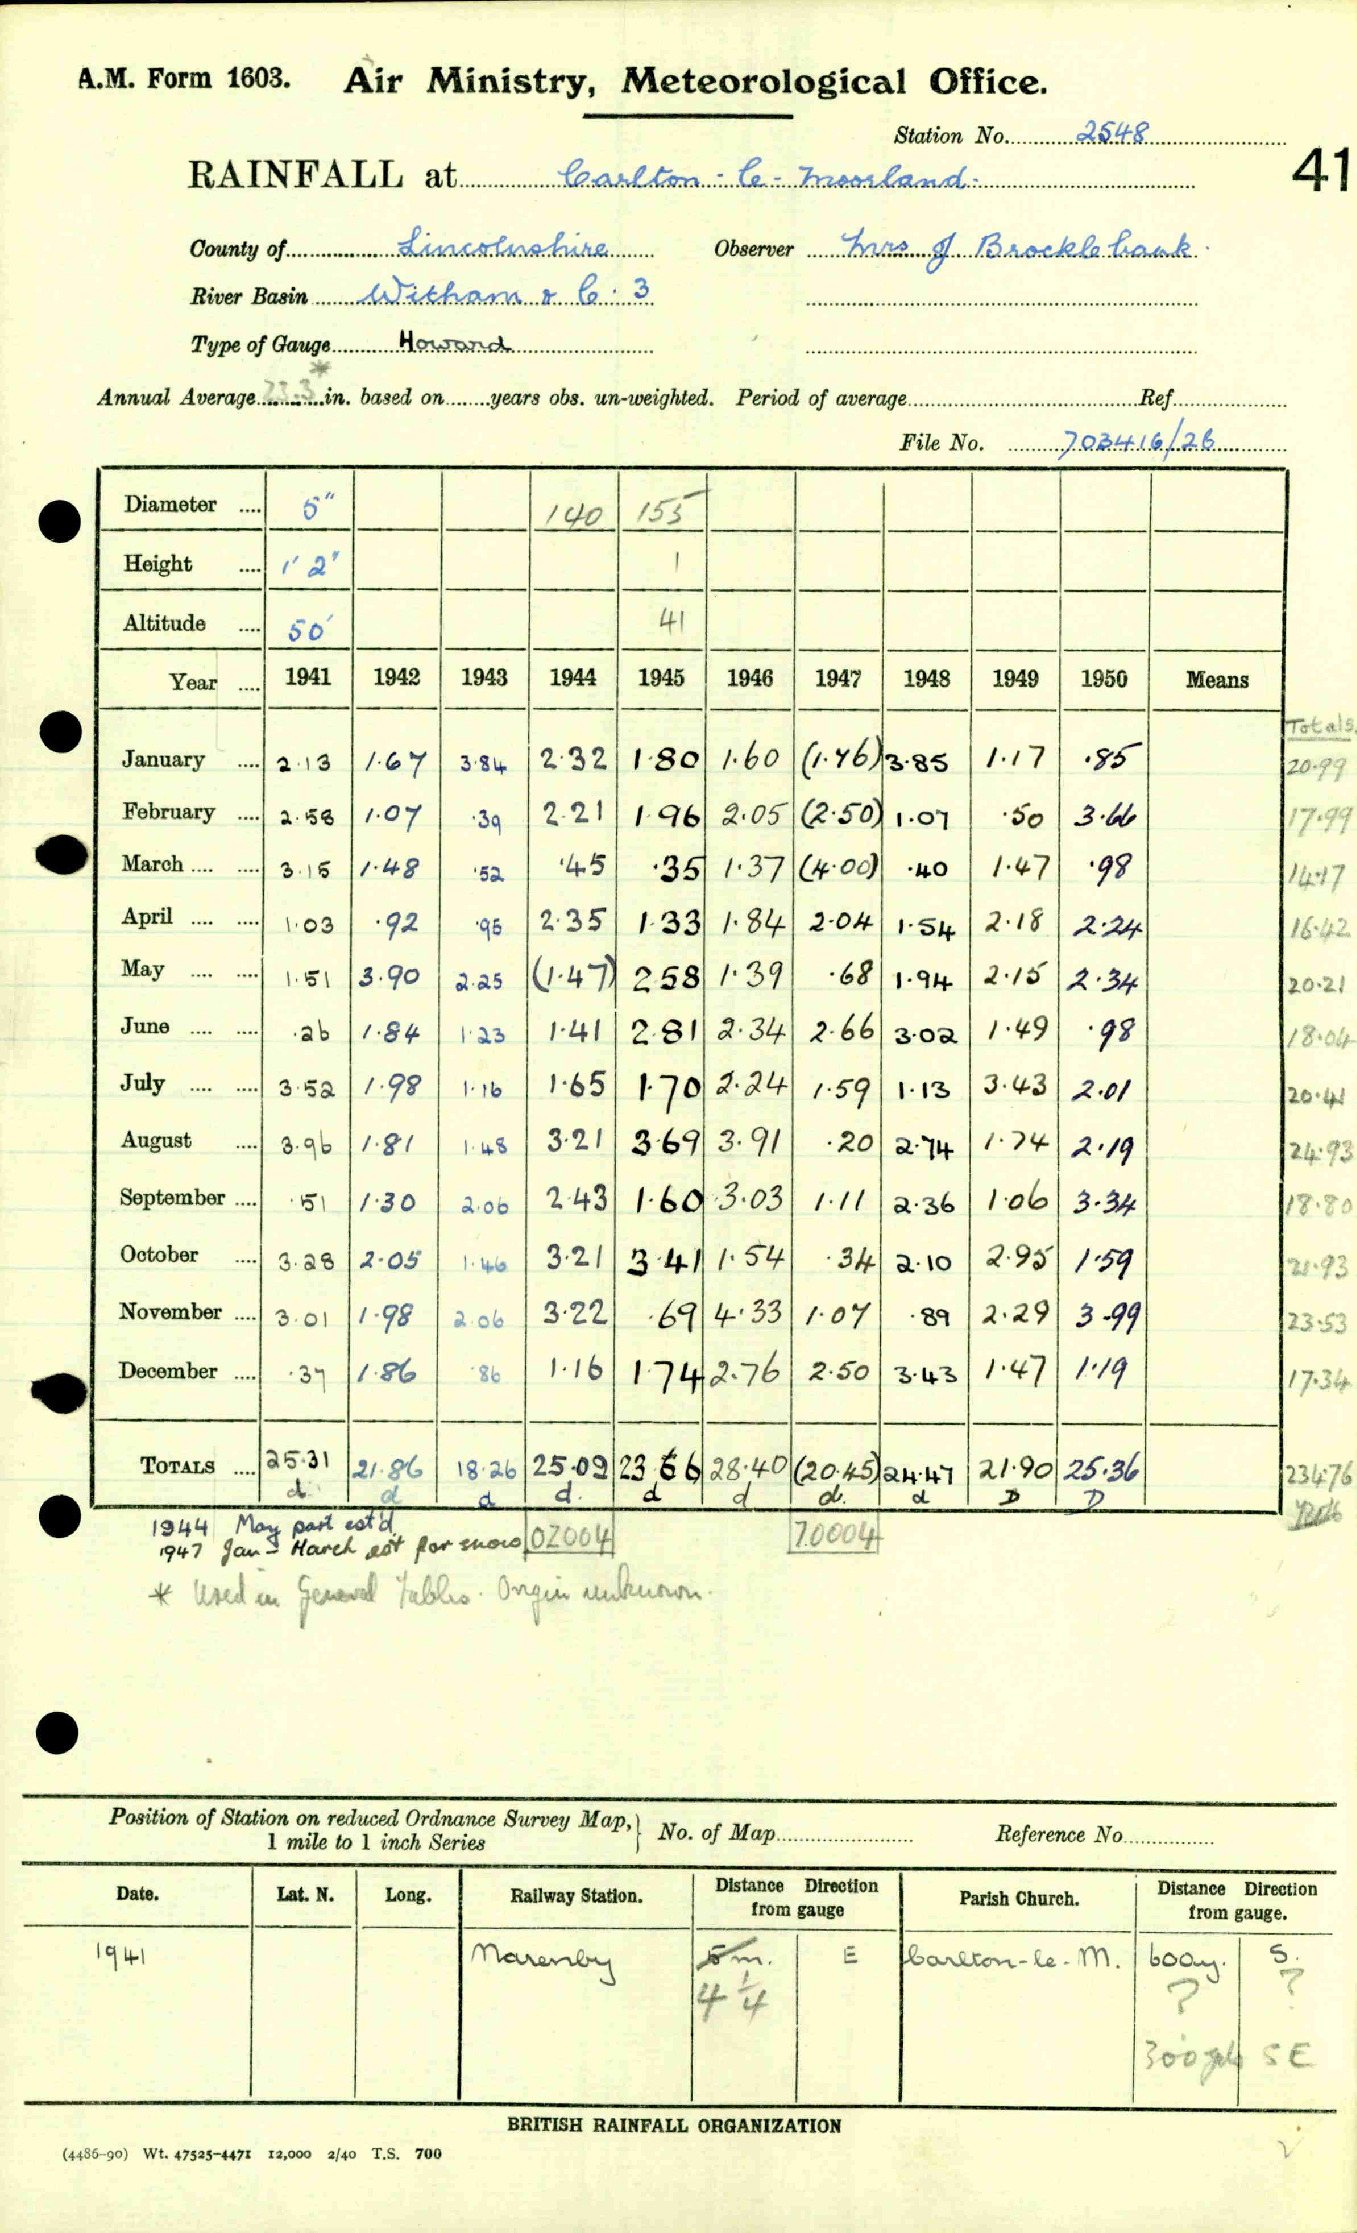 A.M. Form 1603. Air Ministry, Meteorological Office.
Station No. 2548
41
RAINFALL at Carlton - le - Moorland.
County of Lincolnshire Observer Mrs J. Brocklebank.
River Basin Witham & C. 3
Type of Gauge Howard
Annual Average 23.3* in. based on years obs. un-weighted. Period of average Ref
File No. 703416/26
Diameter .... 5" 140 155
Height .... 1' 2" 1
Altitude .... 50' 41
Year .... 1941 1942 1943 1944 1945 1946 1947 1948 1949 1950 Means
Totals
January .... 2.13 1.67 3.84 2.32 1.80 1.60 (1.76) 3.85 1.17 .85 20.99
February .... 2.58 1.07 .39 2.21 1.96 2.05 (2.50) 1.07 .50 3.66 17.99
March .... .... 3.15 1.48 .52 .45 .35 1.37 (4.00) .40 1.47 .98 14.17
April .... .... 1.03 .92 .95 2.35 1.33 1.84 2.04 1.54 2.18 2.24 16.42
May .... .... 1.51 3.90 2.25 (1.47) 2.58 1.39 .68 1.94 2.15 2.34 20.21
June .... .... .26 1.84 1.23 1.41 2.81 2.34 2.66 3.02 1.49 .98 18.04
July .... .... 3.52 1.98 1.16 1.65 1.70 2.24 1.59 1.13 3.43 2.01 20.41
August .... 3.96 1.81 1.48 3.21 3.69 3.91 .20 2.74 1.74 2.19 24.93
September .... .51 1.30 2.06 2.43 1.60 3.03 1.11 2.36 1.06 3.34 18.80
October .... 3.28 2.05 1.46 3.21 3.41 1.54 .34 2.10 2.95 1.59 21.93
November .... 3.01 1.98 2.06 3.22 .69 4.33 1.07 .89 2.29 3.99 23.53
December .... .37 1.86 .86 1.16 1.74 2.76 2.50 3.43 1.47 1.19 17.34
TOTALS .... 25.31 21.86 18.26 25.09 23.66 28.40 (20.45) 24.47 21.90 25.36 234.76
d d d d. d d d. d D D
1944 May part est'd. 02004 70004
1947 Jan - March est for snow
* Used in General Tables. Origin unknown.
Position of Station on reduced Ordnance Survey Map, 1 mile to 1 inch Series } No. of Map Reference No.
Date. Lat. N. Long. Railway Station. Distance Direction from gauge Parish Church. Distance Direction from gauge.
1941 Navenby 5 m. E Carlton-le-M. 600y. S.
4 1/4 ? ?
300 yds SE
BRITISH RAINFALL ORGANIZATION
(4486-90) Wt. 47525-4471 12,000 2/40 T.S. 700